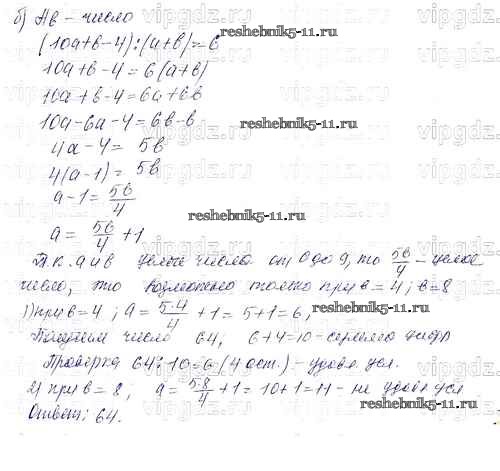 б) ав - число
(10а+в-4):(а+в)=6
10а+в-4=6(а+в)
10а+в-4=6а+6в
10а-6а-4=6в-в
4а-4= 5в
4(а-1)= 5в
а-1= 5в/4
а= 5в/4 +1
Т.к. а и в целые числа от 0 до 9, то 5в/4 - целое
число, то возможно только при в=4; в=8
1) при в=4; а= 5·4/4 +1=5+1=6,
Получим число 64, 6+4=10- сумма цифр
Проверка 64:10=6 (4 ост.)- удовл. усл.
2) при в=8; а= 5·8/4 +1=10+1=11- не удовл усл
Ответ: 64.
vipgdz.ru
reshebnik5-11.ru
vipgdz.ru
reshebnik5-11.ru
vipgdz.ru
reshebnik5-11.ru
vipgdz.ru
reshebnik5-11.ru
reshebnik5-11.ru